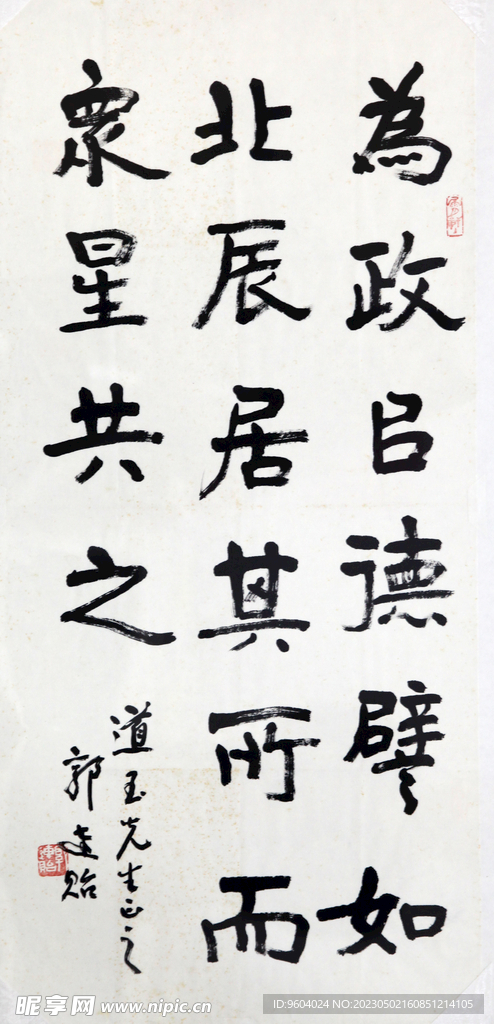 為政㠯德譬如
北辰居其所而
衆星共之
道玉先生正之
郭連貽
昵享网 www.nipic.cn
ID:9604024 NO:20230502160851214105